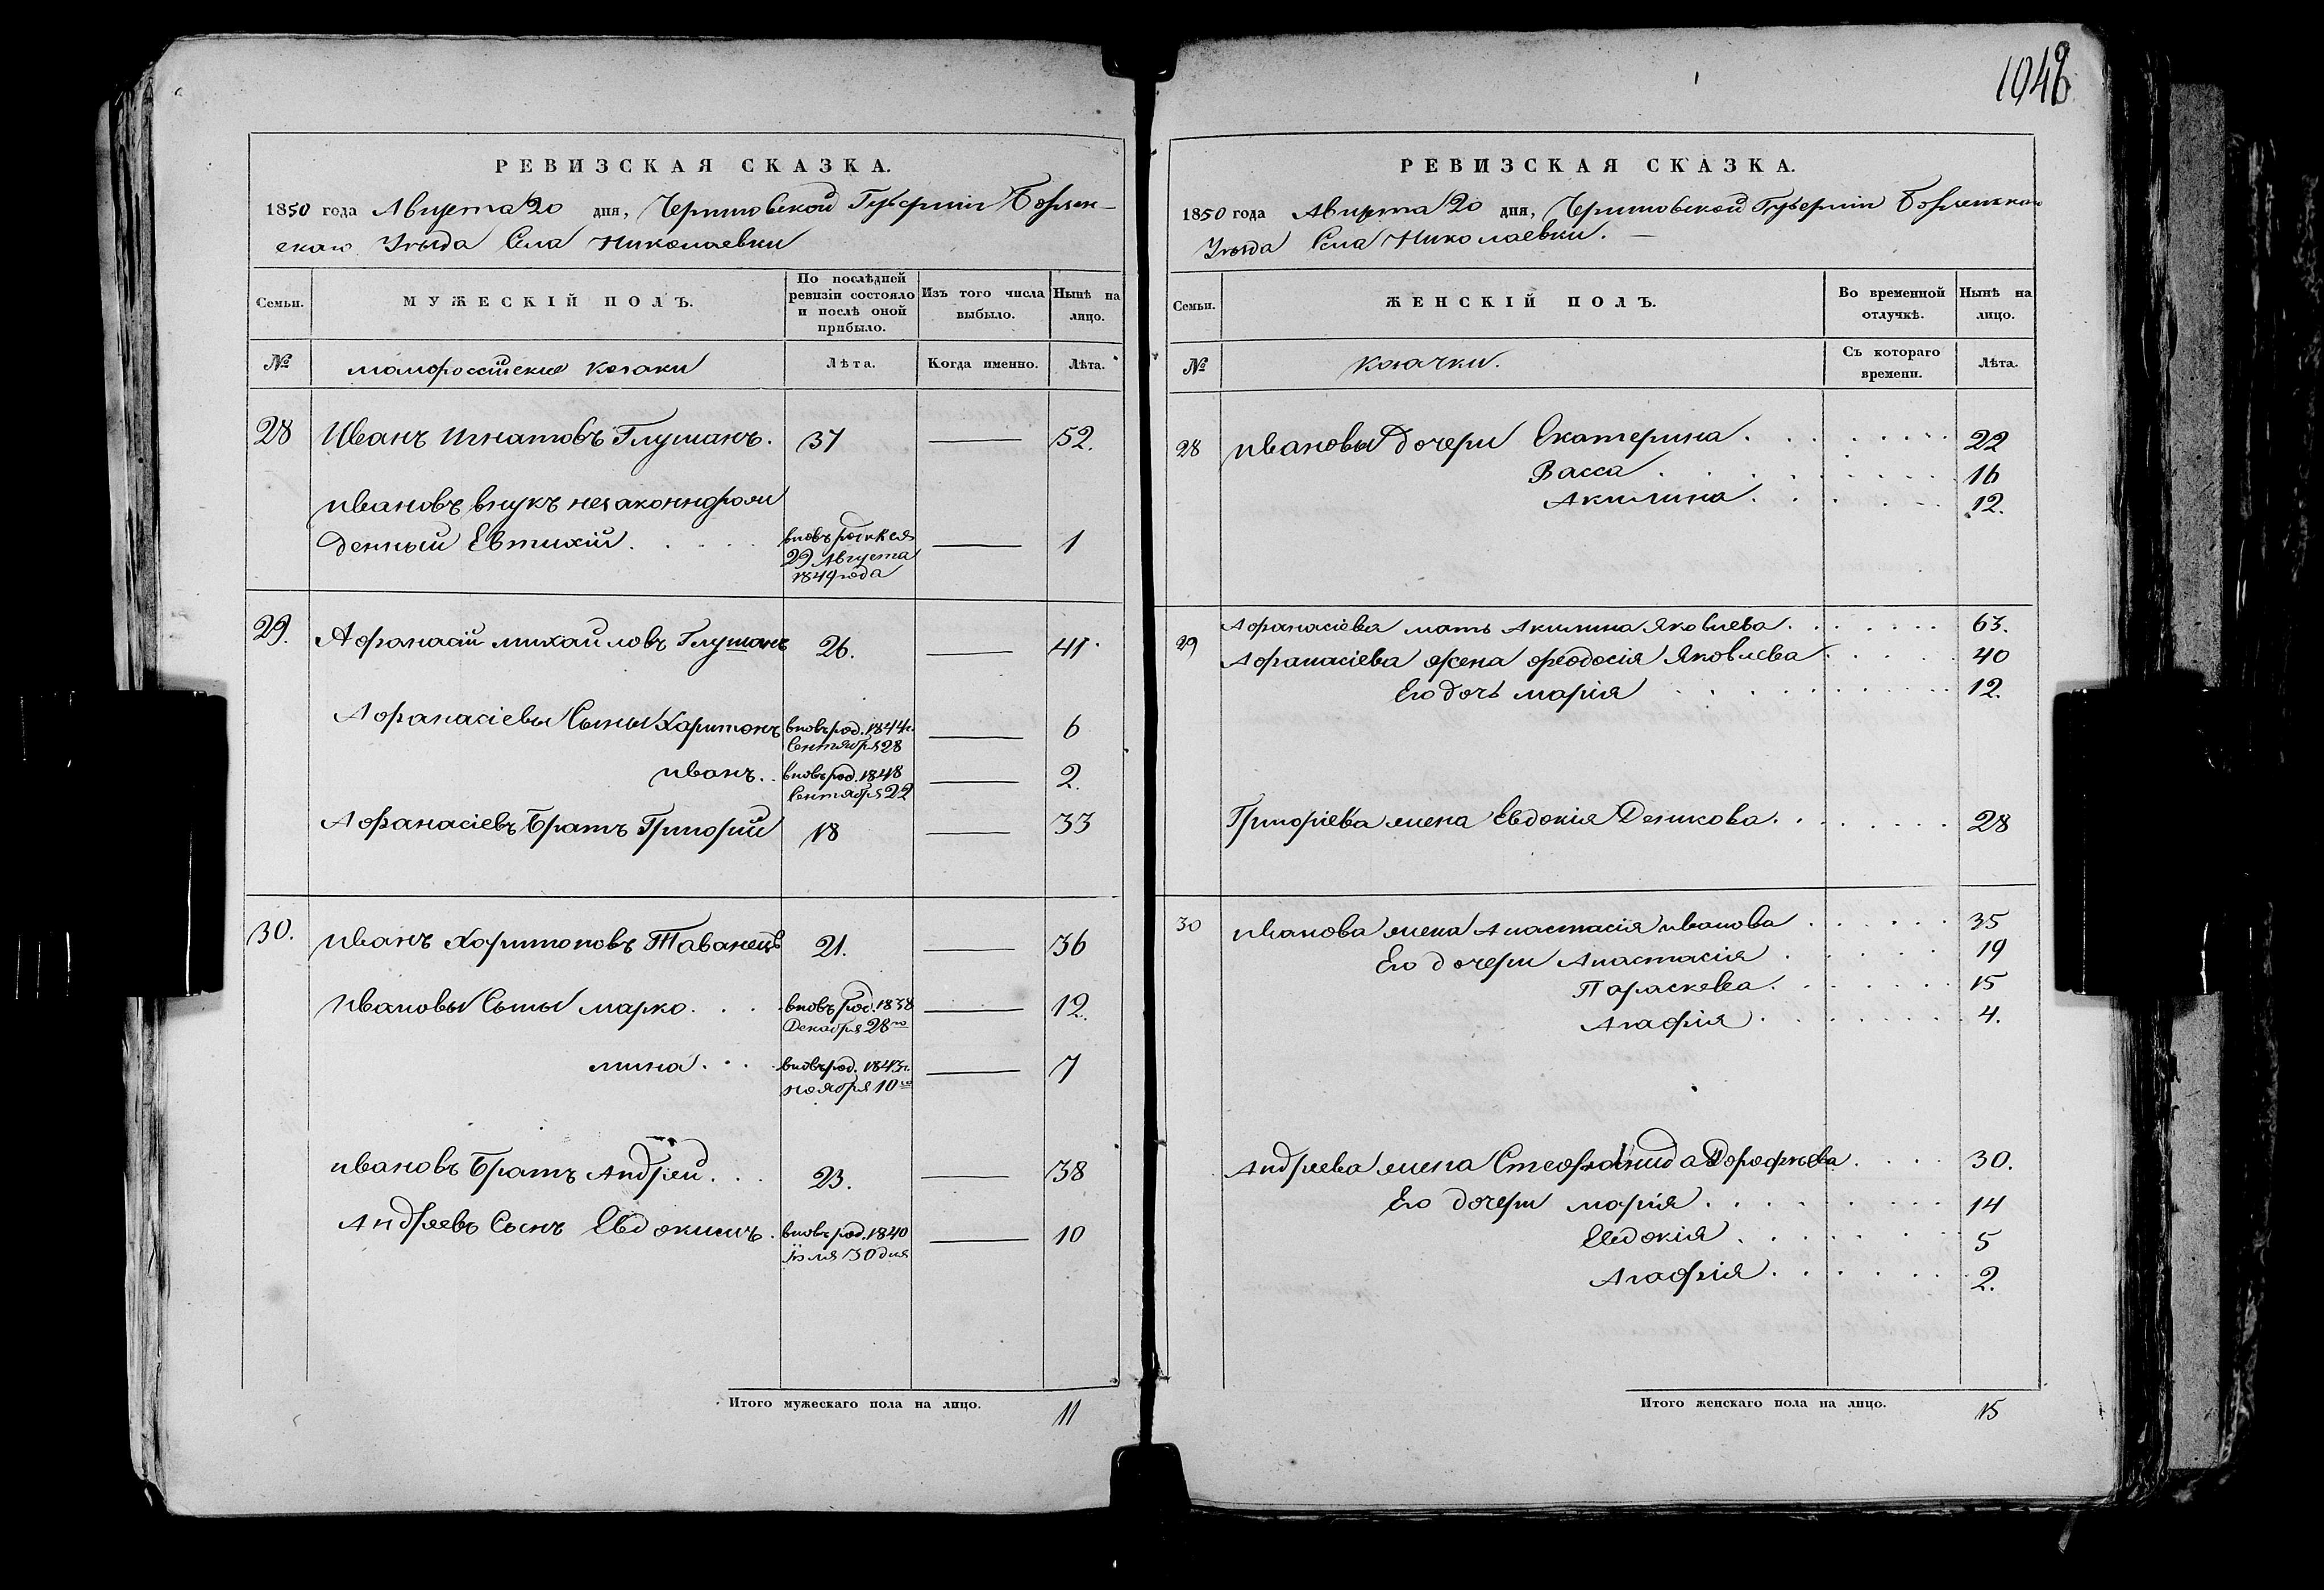 1048
РЕВИЗСКАЯ СКАЗКА.
1850 года Августа 20 дня, Черниговской Губерніи Борзен-
скаго Уѣзда Села Николаевки
Семьи. МУЖЕСКІЙ ПОЛЪ. По послѣдней ревизіи состояло и послѣ оной прибыло. Изъ того числа выбыло. Нынѣ на лицо.
№ малороссійскіе козаки Лѣта. Когда именно. Лѣта.
28 Иванъ Игнатовъ Глушакъ. 37 — 52.
Ивановъ внукъ незаконнорож
денный Евтихій. вновь родился 29 Августа 1849 года — 1
29. Афанасій михайловъ Глушакъ 26. — 41.
Афанасіевы Сыны Харитонъ вновь род. 1844 г. Сентября 28 — 6
иванъ. вновь род. 1848 Сентября 22 — 2.
Афанасіевъ Братъ Григорій 18 — 33
30. Иванъ Харитоновъ Таванецъ 21. — 36
Ивановы Сыны марко. вновь род. 1838 Декабря 28го — 12.
мина. вновь род. 1843 г. ноября 10го — 7
ивановъ Братъ Андрей. 23. — 38
Андреевъ Сынъ Евдокимъ. вновь род. 1840 Іюля 30 дня — 10
Итого мужескаго пола на лицо. 11
РЕВИЗСКАЯ СКАЗКА.
1850 года Августа 20 дня, Черниговской Губерніи Борзенскаго
Уѣзда Села Николаевки. —
Семьи. ЖЕНСКІЙ ПОЛЪ. Во временной отлучкѣ. Нынѣ на лицо.
№ Козачки. Съ котораго времени. Лѣта.
28 Ивановы дочери Екатерина. 22
Васса. 16
Акилина. 12.
29 Афанасіева мать Акилина Яковлева. 63.
Афанасіева жена феодосія Яковлева 40
Его дочь марія 12.
Григоріева жена Евдокія Денисова. 28
30 Иванова жена Анастасія иванова 35
Его дочери Анастасія 19
Параскева. 15
Агафія. 4.
Андреева жена Стефанида Дорофѣева. 30.
Его дочери марія. 14
Евдокія. 5
Агафія. 2.
Итого женскаго пола на лицо. 15